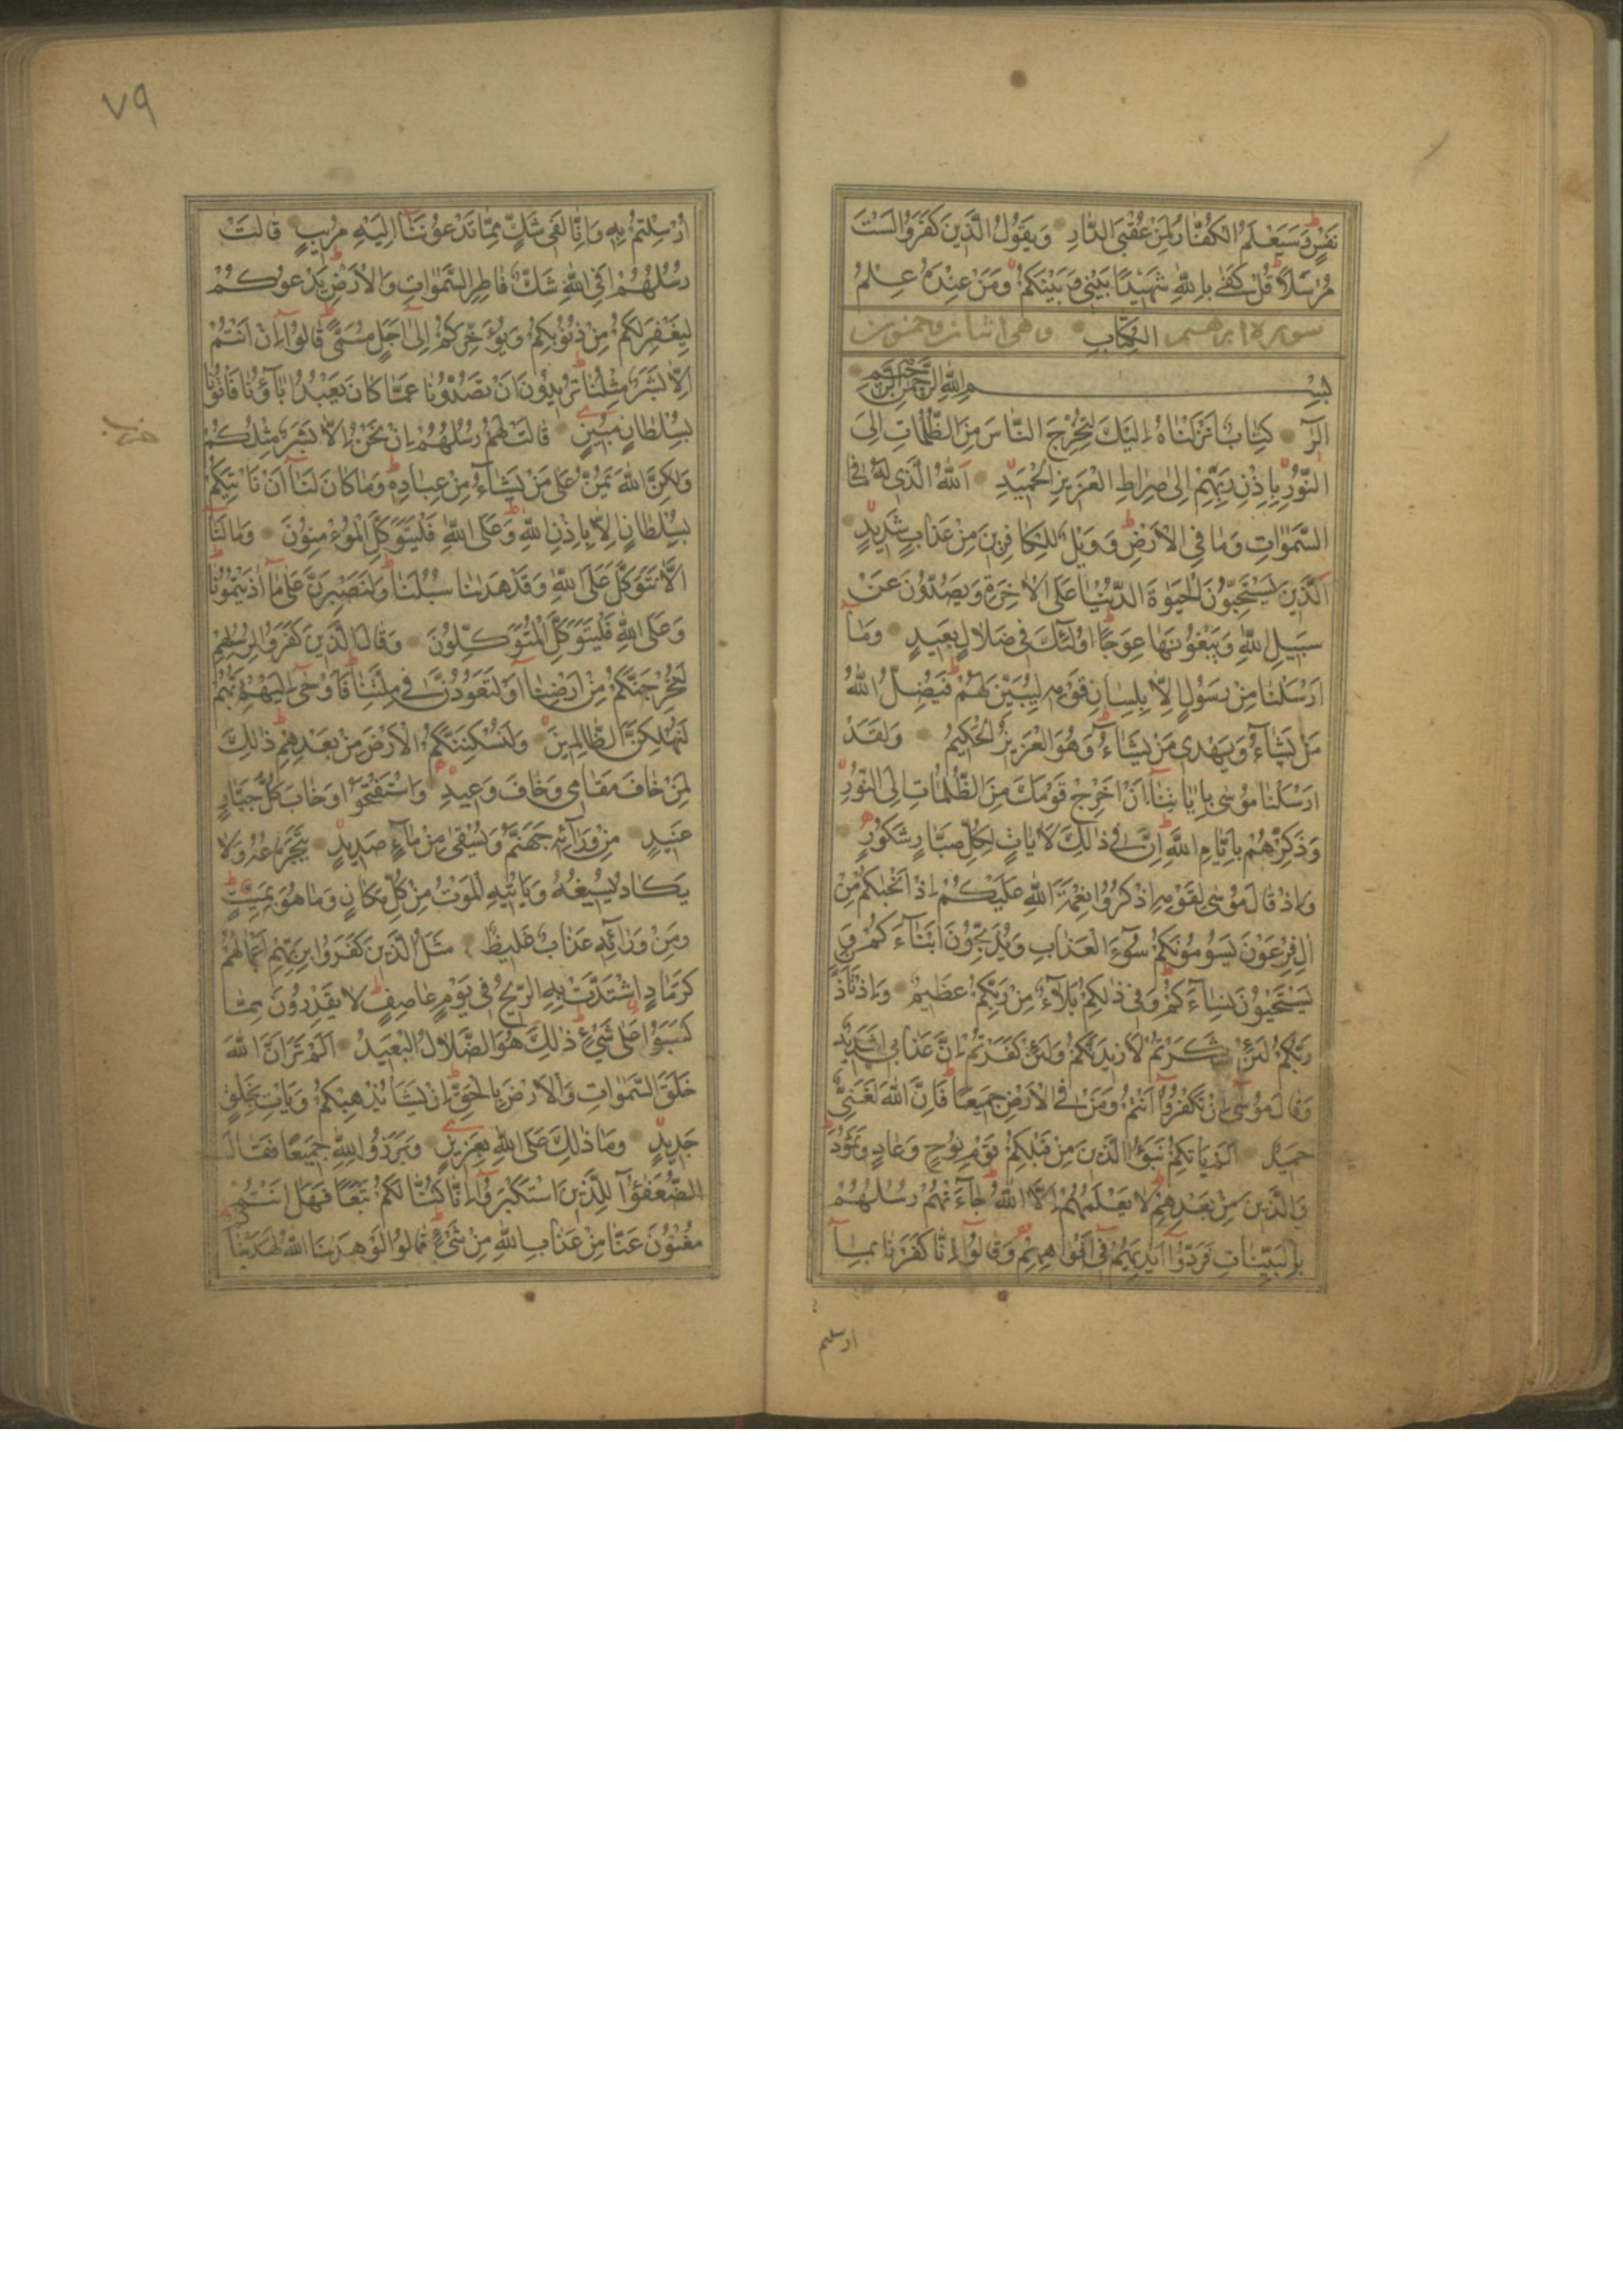 نَفْسٍ وَسَيَعْلَمُ الْكُفَّارُ لِمَنْ عُقْبَى الدَّارِ وَيَقُولُ الَّذِينَ كَفَرُوا لَسْتَ
مُرْسَلًا قُلْ كَفَىٰ بِاللَّهِ شَهِيدًا بَيْنِي وَبَيْنَكُمْ وَمَنْ عِنْدَهُ عِلْمُ
سورة ابرهيم الْكِتَابِ وهي اثنان وخمسون
بِسْمِ اللَّهِ الرَّحْمَنِ الرَّحِيمِ
الٓرٰ كِتَابٌ اَنْزَلْنَاهُ اِلَيْكَ لِتُخْرِجَ النَّاسَ مِنَ الظُّلُمَاتِ اِلَى
النُّورِ بِاِذْنِ رَبِّهِمْ اِلٰى صِرَاطِ الْعَزِيزِ الْحَمِيدِ اَللّٰهُ الَّذِي لَهُ مَا فِي
السَّمٰوَاتِ وَمَا فِي الْاَرْضِ وَوَيْلٌ لِلْكَافِرِينَ مِنْ عَذَابٍ شَدِيدٍ
اَلَّذِينَ يَسْتَحِبُّونَ الْحَيٰوةَ الدُّنْيَا عَلَى الْاٰخِرَةِ وَيَصُدُّونَ عَنْ
سَبِيلِ اللّٰهِ وَيَبْغُونَهَا عِوَجًا اُولٰئِكَ فِي ضَلَالٍ بَعِيدٍ وَمَا
اَرْسَلْنَا مِنْ رَسُولٍ اِلَّا بِلِسَانِ قَوْمِهِ لِيُبَيِّنَ لَهُمْ فَيُضِلُّ اللّٰهُ
مَنْ يَشَاءُ وَيَهْدِي مَنْ يَشَاءُ وَهُوَ الْعَزِيزُ الْحَكِيمُ وَلَقَدْ
اَرْسَلْنَا مُوسٰى بِاٰيَاتِنَا اَنْ اَخْرِجْ قَوْمَكَ مِنَ الظُّلُمَاتِ اِلَى النُّورِ
وَذَكِّرْهُمْ بِاَيَّامِ اللّٰهِ اِنَّ فِي ذٰلِكَ لَاٰيَاتٍ لِكُلِّ صَبَّارٍ شَكُورٍ
وَاِذْ قَالَ مُوسٰى لِقَوْمِهِ اذْكُرُوا نِعْمَةَ اللّٰهِ عَلَيْكُمْ اِذْ اَنْجٰيكُمْ مِنْ
اٰلِ فِرْعَوْنَ يَسُومُونَكُمْ سُوءَ الْعَذَابِ وَيُذَبِّحُونَ اَبْنَاءَكُمْ وَ
يَسْتَحْيُونَ نِسَاءَكُمْ وَفِي ذٰلِكُمْ بَلَاءٌ مِنْ رَبِّكُمْ عَظِيمٌ وَاِذْ تَاَذَّنَ
رَبُّكُمْ لَئِنْ شَكَرْتُمْ لَاَزِيدَنَّكُمْ وَلَئِنْ كَفَرْتُمْ اِنَّ عَذَابِي لَشَدِيدٌ
وَقَالَ مُوسٰى اِنْ تَكْفُرُوا اَنْتُمْ وَمَنْ فِي الْاَرْضِ جَمِيعًا فَاِنَّ اللّٰهَ لَغَنِيٌّ
حَمِيدٌ اَلَمْ يَاْتِكُمْ نَبَؤُا الَّذِينَ مِنْ قَبْلِكُمْ قَوْمِ نُوحٍ وَعَادٍ وَثَمُودَ
وَالَّذِينَ مِنْ بَعْدِهِمْ لَا يَعْلَمُهُمْ اِلَّا اللّٰهُ جَاءَتْهُمْ رُسُلُهُمْ
بِالْبَيِّنَاتِ فَرَدُّوا اَيْدِيَهُمْ فِي اَفْوَاهِهِمْ وَقَالُوا اِنَّا كَفَرْنَا بِمَا
ارسلتم
٧٩
اُرْسِلْتُمْ بِهِ وَاِنَّا لَفِي شَكٍّ مِمَّا تَدْعُونَنَا اِلَيْهِ مُرِيبٍ قَالَتْ
رُسُلُهُمْ اَفِي اللّٰهِ شَكٌّ فَاطِرِ السَّمٰوَاتِ وَالْاَرْضِ يَدْعُوكُمْ
لِيَغْفِرَ لَكُمْ مِنْ ذُنُوبِكُمْ وَيُؤَخِّرَكُمْ اِلٰى اَجَلٍ مُسَمًّى قَالُوا اِنْ اَنْتُمْ
اِلَّا بَشَرٌ مِثْلُنَا تُرِيدُونَ اَنْ تَصُدُّونَا عَمَّا كَانَ يَعْبُدُ اٰبَاؤُنَا فَاْتُونَا
بِسُلْطَانٍ مُبِينٍ قَالَتْ لَهُمْ رُسُلُهُمْ اِنْ نَحْنُ اِلَّا بَشَرٌ مِثْلُكُمْ
حزب
وَلٰكِنَّ اللّٰهَ يَمُنُّ عَلٰى مَنْ يَشَاءُ مِنْ عِبَادِهِ وَمَا كَانَ لَنَا اَنْ نَاْتِيَكُمْ
بِسُلْطَانٍ اِلَّا بِاِذْنِ اللّٰهِ وَعَلَى اللّٰهِ فَلْيَتَوَكَّلِ الْمُؤْمِنُونَ وَمَا لَنَا
اَلَّا نَتَوَكَّلَ عَلَى اللّٰهِ وَقَدْ هَدٰينَا سُبُلَنَا وَلَنَصْبِرَنَّ عَلٰى مَا اٰذَيْتُمُونَا
وَعَلَى اللّٰهِ فَلْيَتَوَكَّلِ الْمُتَوَكِّلُونَ وَقَالَ الَّذِينَ كَفَرُوا لِرُسُلِهِمْ
لَنُخْرِجَنَّكُمْ مِنْ اَرْضِنَا اَوْ لَتَعُودُنَّ فِي مِلَّتِنَا فَاَوْحٰى اِلَيْهِمْ رَبُّهُمْ
لَنُهْلِكَنَّ الظَّالِمِينَ وَلَنُسْكِنَنَّكُمُ الْاَرْضَ مِنْ بَعْدِهِمْ ذٰلِكَ
لِمَنْ خَافَ مَقَامِي وَخَافَ وَعِيدِ وَاسْتَفْتَحُوا وَخَابَ كُلُّ جَبَّارٍ
عَنِيدٍ مِنْ وَرَائِهِ جَهَنَّمُ وَيُسْقٰى مِنْ مَاءٍ صَدِيدٍ يَتَجَرَّعُهُ وَلَا
يَكَادُ يُسِيغُهُ وَيَاْتِيهِ الْمَوْتُ مِنْ كُلِّ مَكَانٍ وَمَا هُوَ بِمَيِّتٍ
وَمِنْ وَرَائِهِ عَذَابٌ غَلِيظٌ مَثَلُ الَّذِينَ كَفَرُوا بِرَبِّهِمْ اَعْمَالُهُمْ
كَرَمَادٍ اشْتَدَّتْ بِهِ الرِّيحُ فِي يَوْمٍ عَاصِفٍ لَا يَقْدِرُونَ مِمَّا
كَسَبُوا عَلٰى شَيْءٍ ذٰلِكَ هُوَ الضَّلَالُ الْبَعِيدُ اَلَمْ تَرَ اَنَّ اللّٰهَ
خَلَقَ السَّمٰوَاتِ وَالْاَرْضَ بِالْحَقِّ اِنْ يَشَاْ يُذْهِبْكُمْ وَيَاْتِ بِخَلْقٍ
جَدِيدٍ وَمَا ذٰلِكَ عَلَى اللّٰهِ بِعَزِيزٍ وَبَرَزُوا لِلّٰهِ جَمِيعًا فَقَالَ
الضُّعَفٰؤُا لِلَّذِينَ اسْتَكْبَرُوا اِنَّا كُنَّا لَكُمْ تَبَعًا فَهَلْ اَنْتُمْ
مُغْنُونَ عَنَّا مِنْ عَذَابِ اللّٰهِ مِنْ شَيْءٍ قَالُوا لَوْ هَدٰينَا اللّٰهُ لَهَدَيْنَا